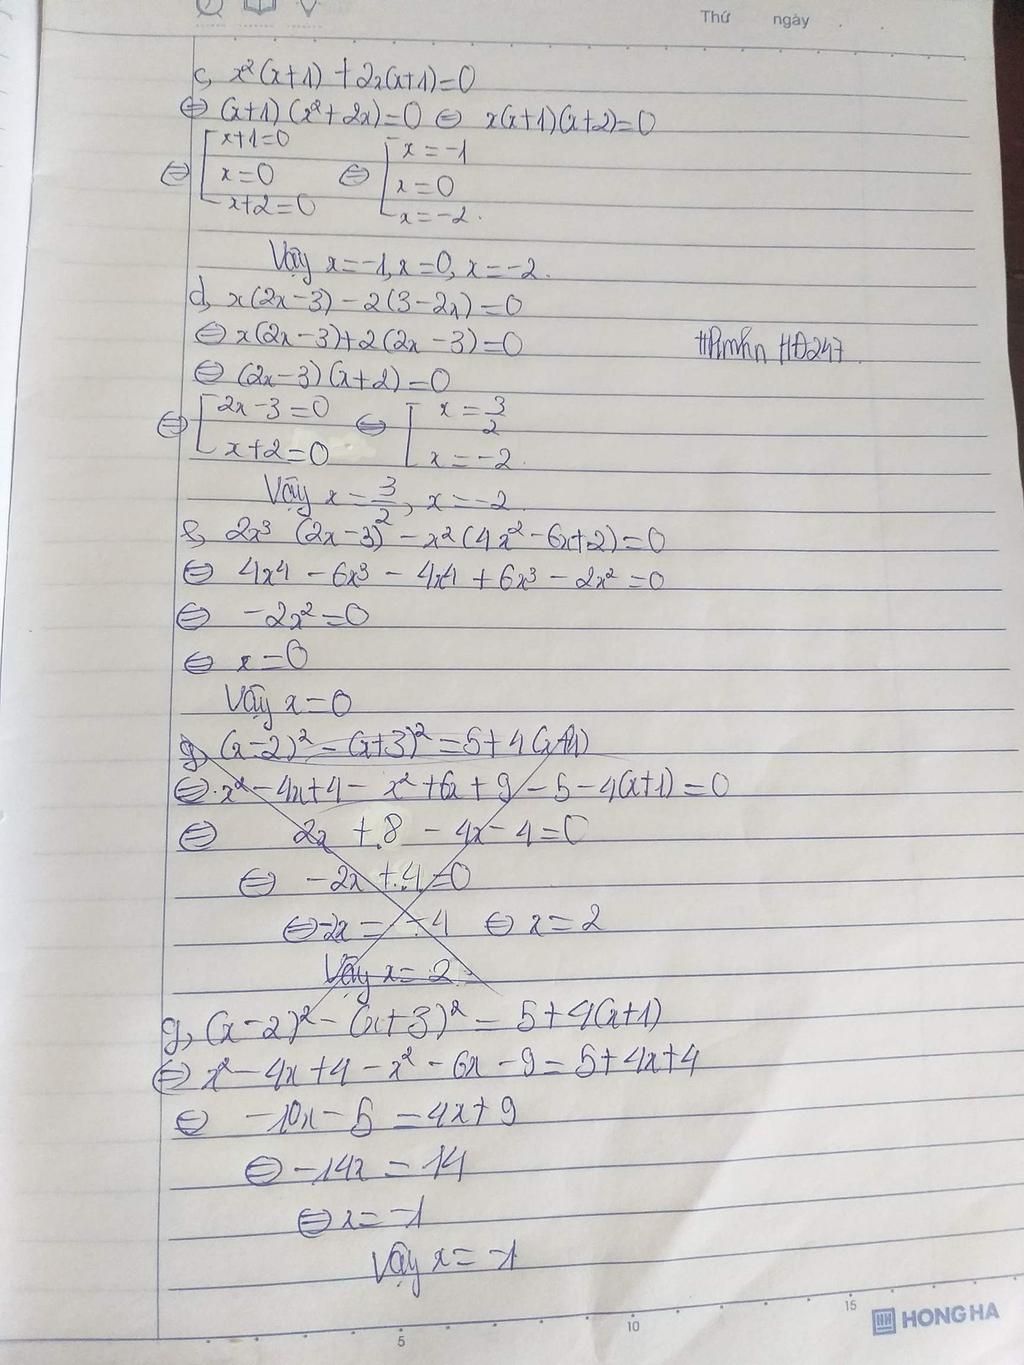 Thứ ngày
c, x²(x+1) + 2x(x+1)=0
⇔ (x+1) (x²+2x)=0 ⇔ x(x+1)(x+2)=0
x+1=0 x=-1
⇔ x=0 ⇔ x=0
x+2=0 x=-2.
Vậy x=-1, x=0, x=-2.
d, x(2x-3) - 2(3-2x)=0
⇔ x(2x-3)+2(2x-3)=0
HĐ247
⇔ (2x-3)(x+2)=0
⇔ 2x-3=0 ⇔ x=3/2
x+2=0 x=-2.
Vậy x=3/2, x=-2
2x³ (2x-3) - x²(4x²-6x+2)=0
⇔ 4x4 - 6x³ - 4x4 + 6x³ - 2x²=0
⇔ -2x²=0
⇔ x=0
Vậy x=0
g, (x-2)² - (x+3)² = 5+4(x+1)
⇔ x² - 4x+4 - x²+6x+9 - 5 - 4(x+1)=0
⇔ 2x + 8 - 4x - 4=0
⇔ -2x + 4=0
⇔ -2x = -4 ⇔ x=2
Vậy x=2
g, (x-2)² - (x+3)² = 5+4(x+1)
⇔ x² - 4x+4 - x² - 6x - 9 = 5+4x+4
⇔ -10x - 5 = 4x+9
⇔ -14x = 14
⇔ x=-1
Vậy x=-1
5 10 15
HONG HA